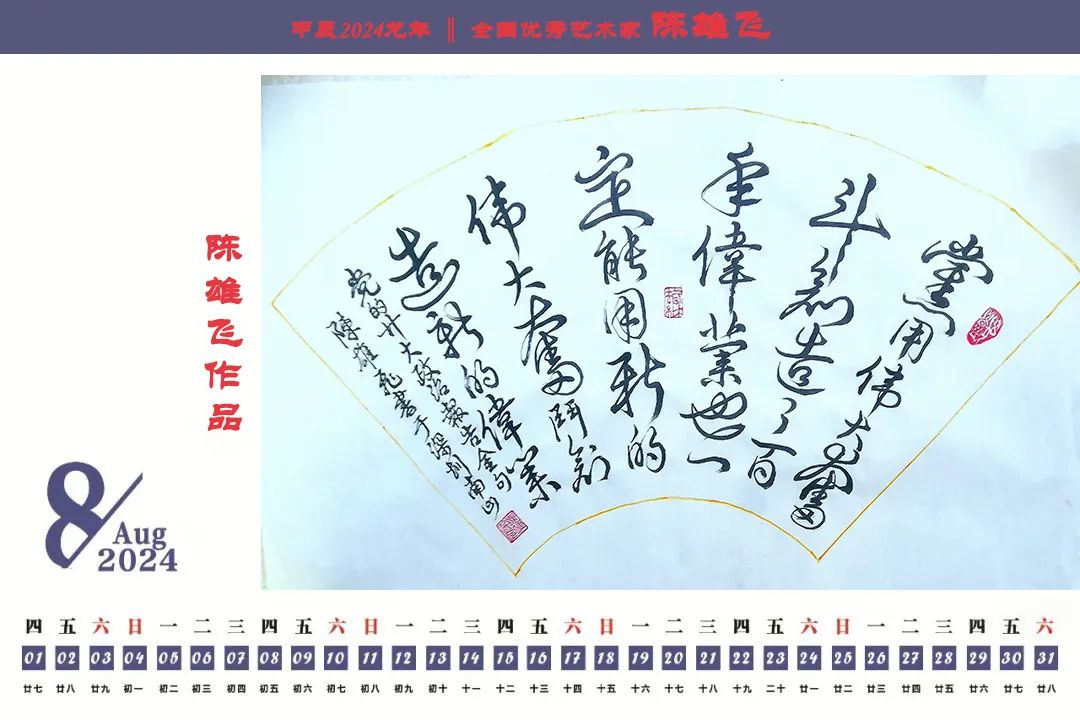 甲辰2024龙年 ‖ 全国优秀艺术家 陈雄飞
陈雄飞作品
党用伟大奮
斗創造了百
年偉業也一
定能用新的
伟大奮鬥創
造新的偉業
党的廿大政治報告金句
陳雄飛書于深圳南山
8/Aug
2024
四 五 六 日 一 二 三 四 五 六 日 一 二 三 四 五 六 日 一 二 三 四 五 六 日 一 二 三 四 五 六
01 02 03 04 05 06 07 08 09 10 11 12 13 14 15 16 17 18 19 20 21 22 23 24 25 26 27 28 29 30 31
廿七 廿八 廿九 初一 初二 初三 初四 初五 初六 初七 初八 初九 初十 十一 十二 十三 十四 十五 十六 十七 十八 十九 二十 廿一 廿二 廿三 廿四 廿五 廿六 廿七 廿八